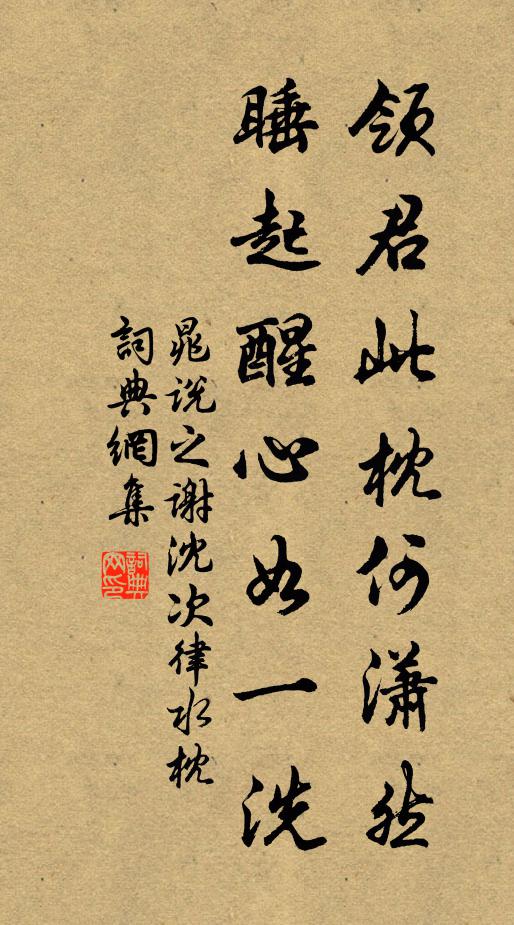 領君此枕何瀟然
睡起醒心如一洗
晁說之謝沈次律水枕
詞典網集
詞典
網印